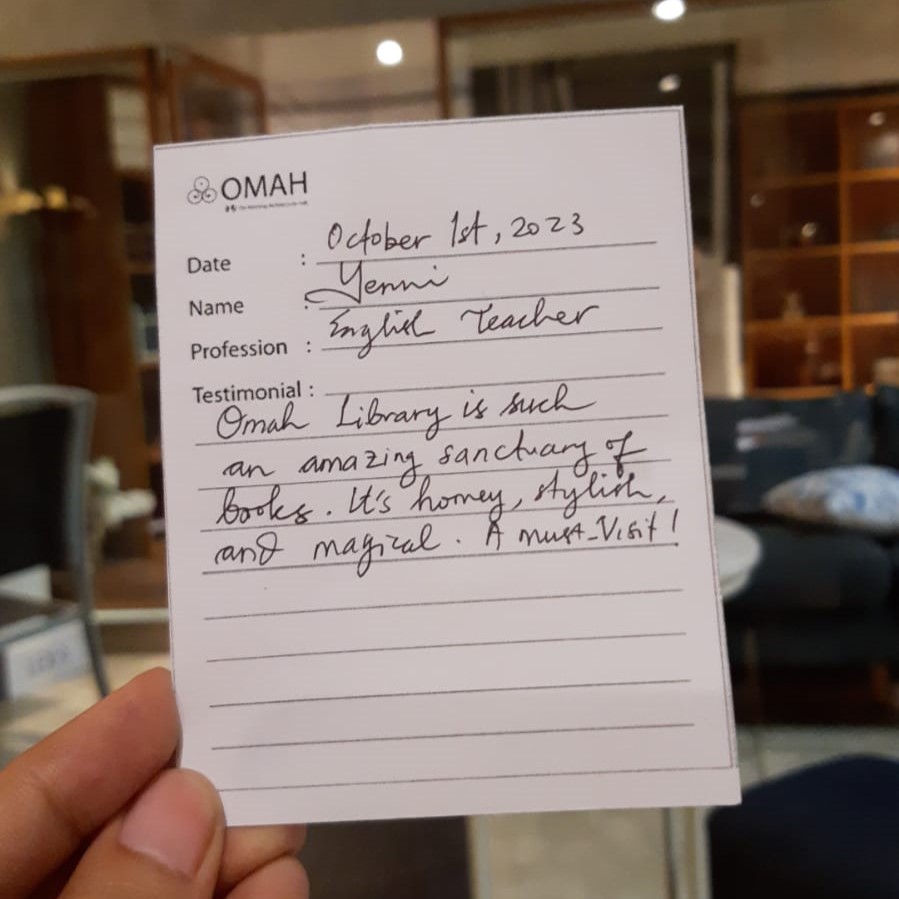 OMAH
Date : October 1st, 2023
Name : Yenni
Profession : English Teacher
Testimonial :
Omah Library is such
an amazing sanctuary of
books. It's homey, stylish,
and magical. A must-Visit!